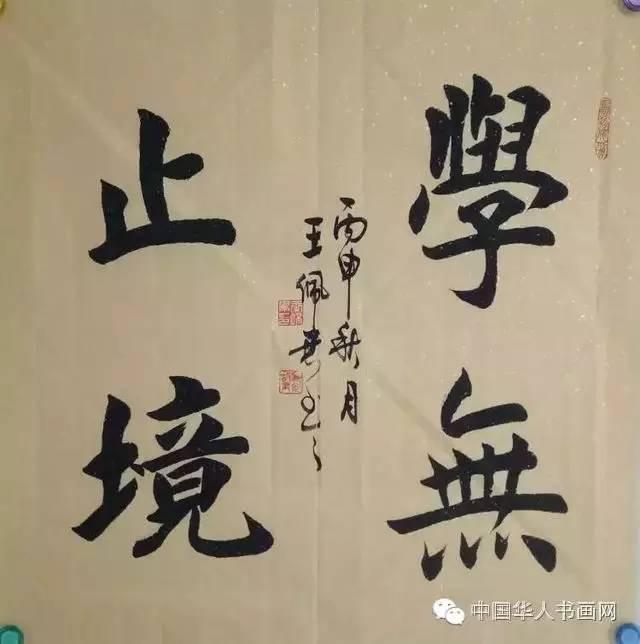 學無
止境
丙申秋月
王佩
书
中国华人书画网